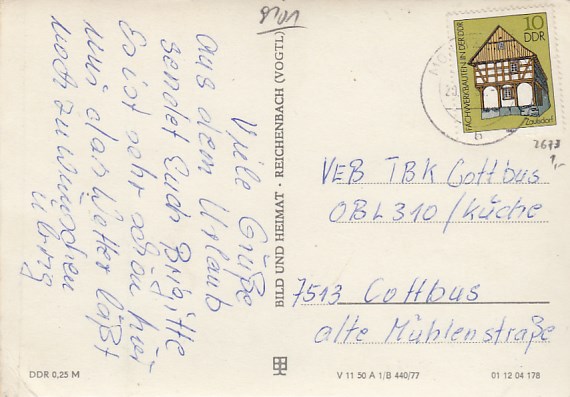 8401
Viele Grüße
aus dem Urlaub
sendet Euch Brigitte
Es ist sehr schön hier
nur das Wetter läßt
noch zu wünschen
übrig
BILD UND HEIMAT · REICHENBACH (VOGTL)
10
DDR
FACHWERKBAUTEN IN DER DDR
Zaulsdorf
2623
1,-
VEB TBK Cottbus
OBL 310 / Küche
7513 Cottbus
alte Mühlenstraße
DDR 0,25 M
V 11 50 A 1/B 440/77
01 12 04 178